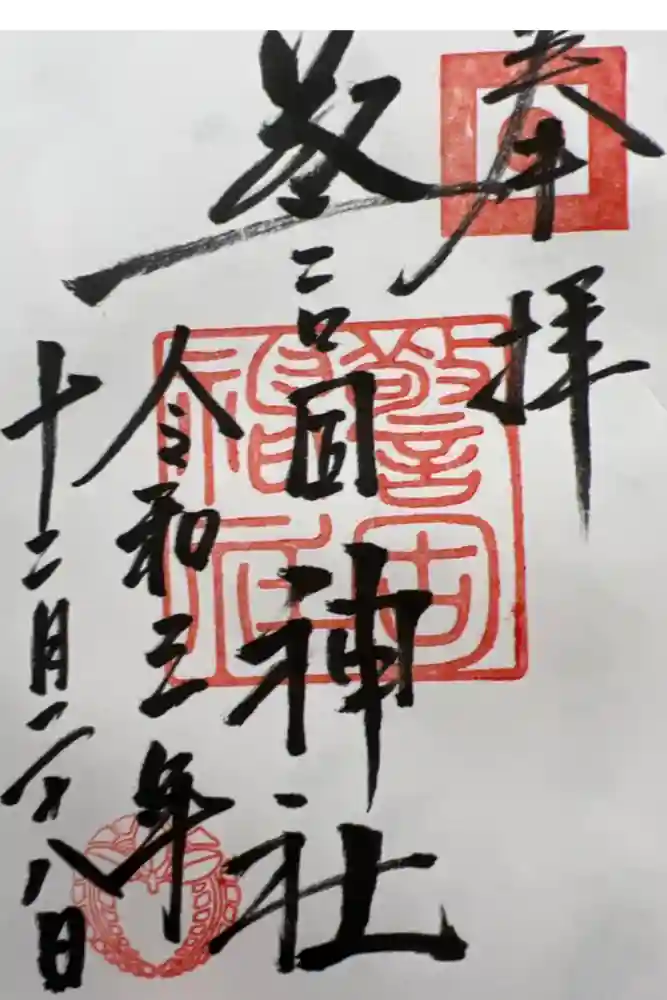 奉拝
警固神社
令和三年
十二月二十八日